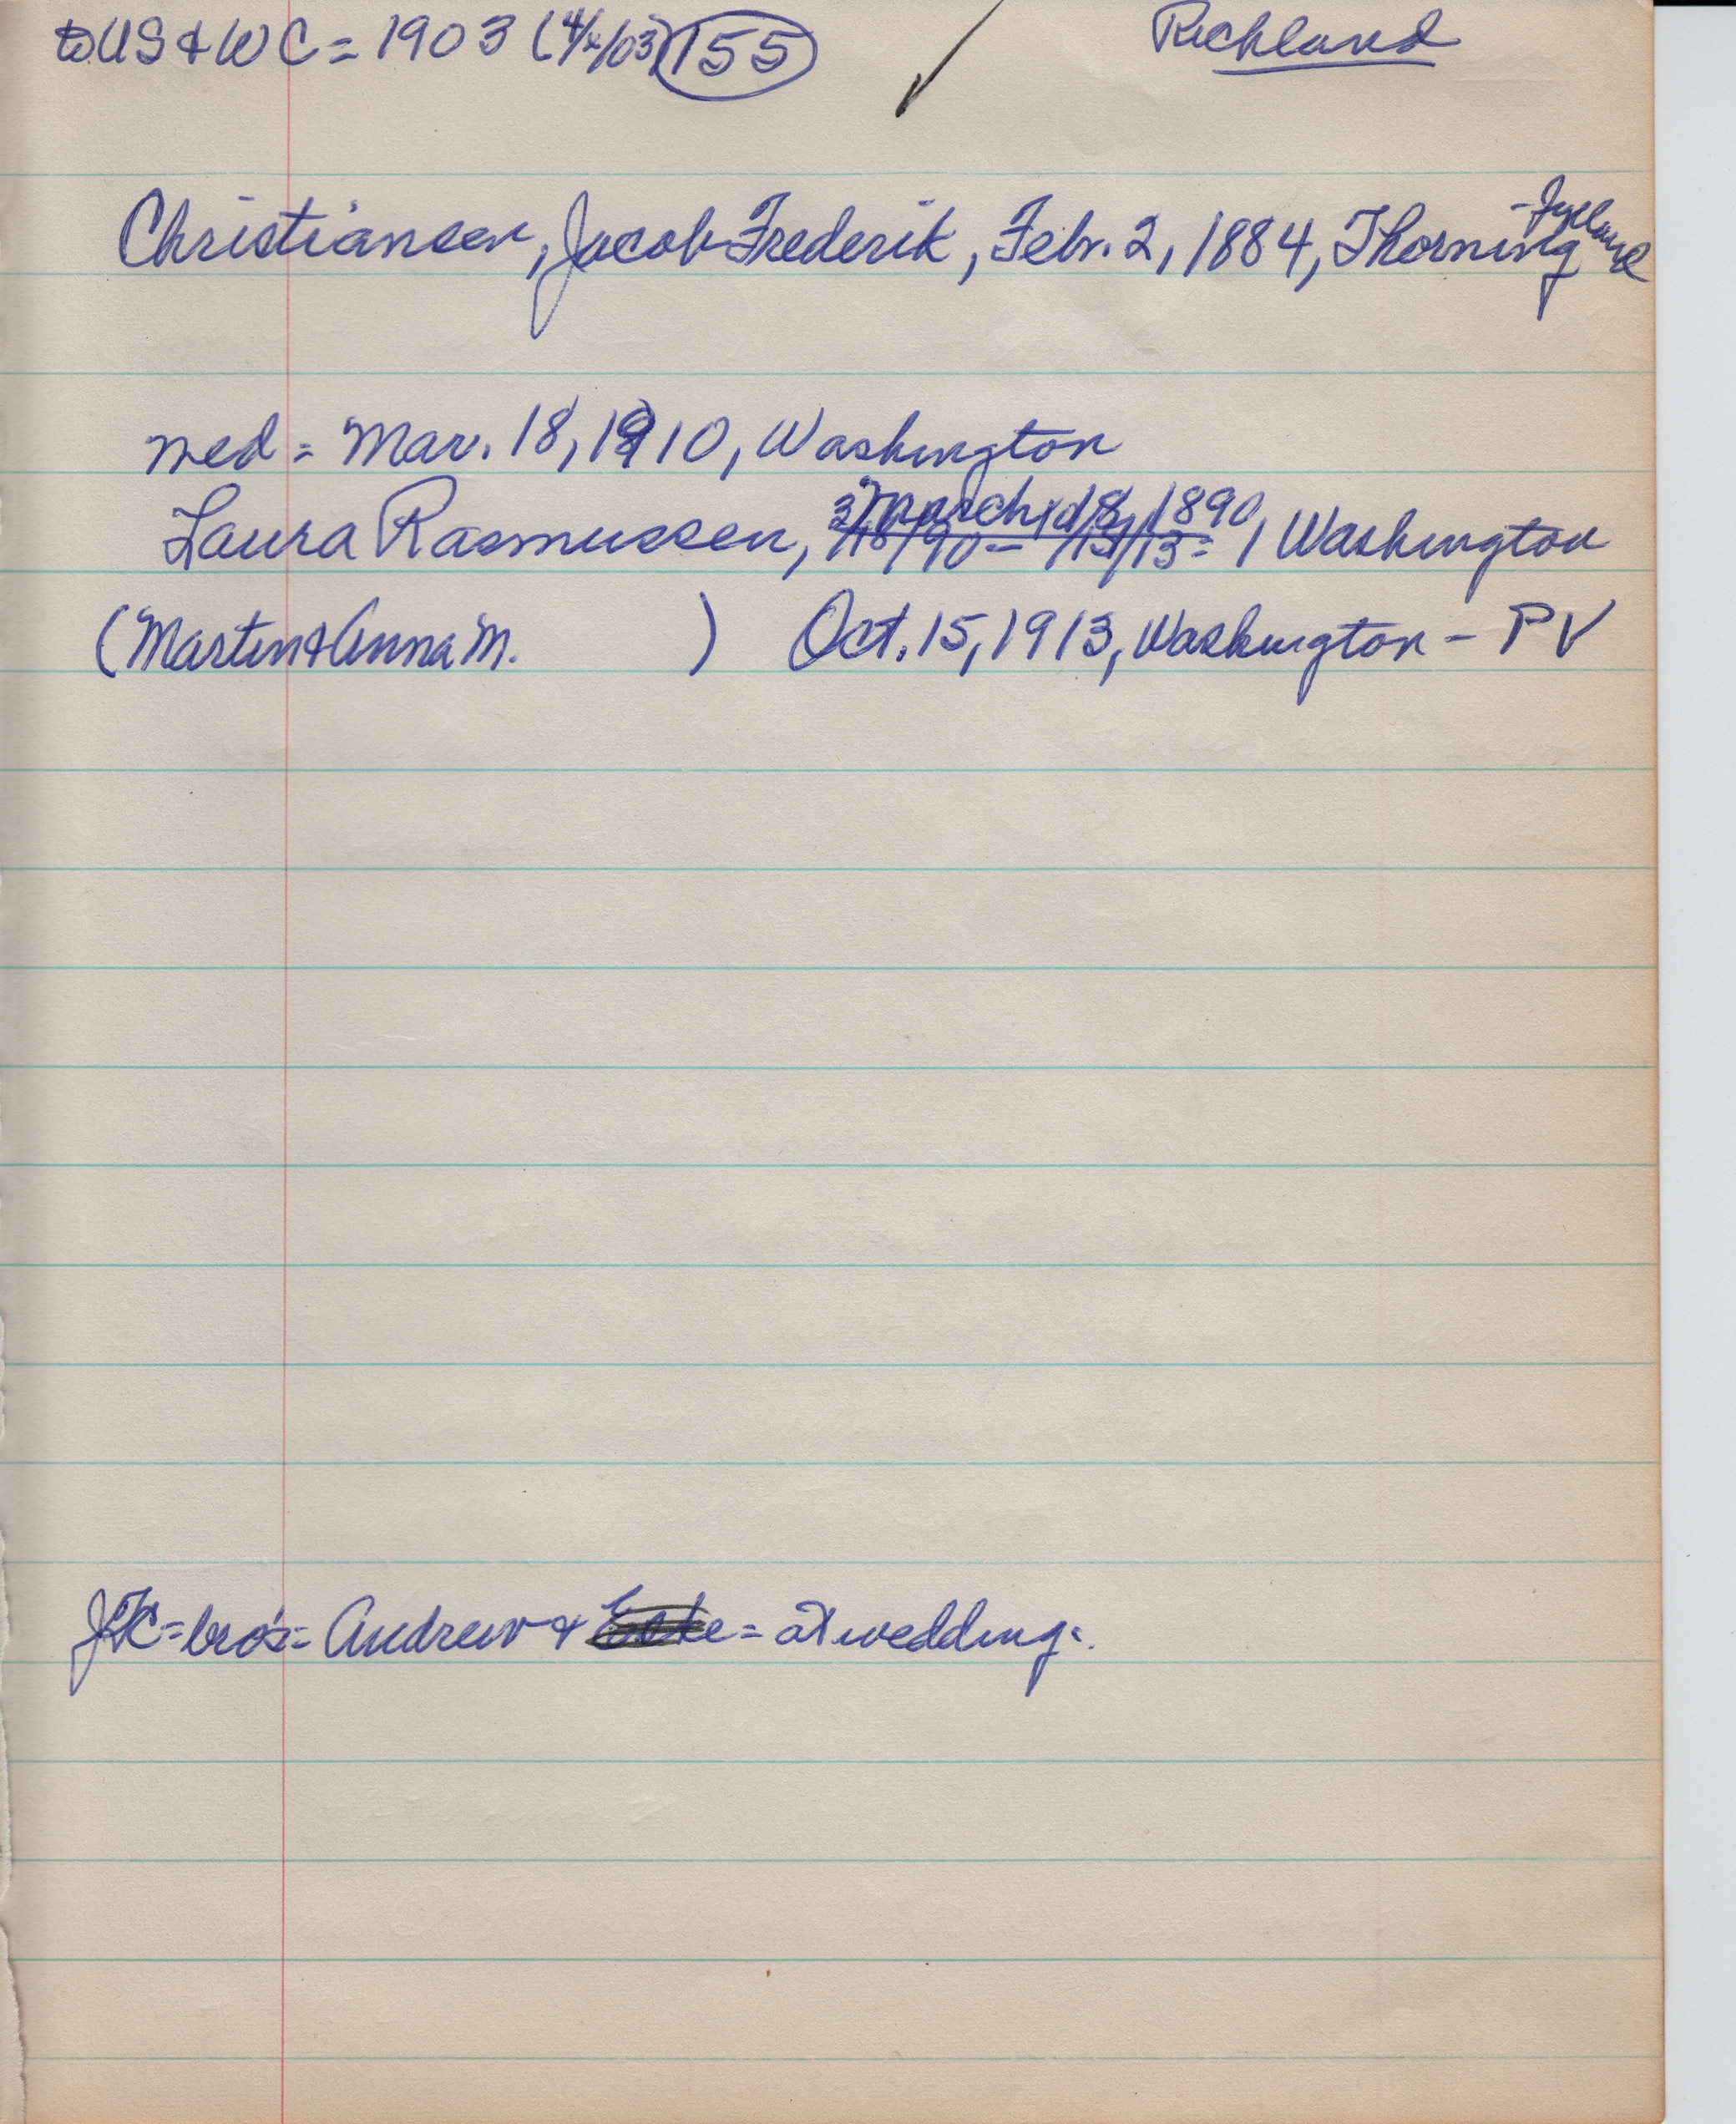 to US & WC = 1903 (4/x/03) 155 Richland
Christiansen, Jacob Frederik, Febr. 2, 1884, Thorning - Jylland
med = Mar. 18, 1910, Washington
Laura Rasmussen, 3/18/90 - /15/13 = March 18, 1890, Washington
(Martin & Anna M. ) Oct. 15, 1913, Washington - PV
JFC = bro's = Andrew & = at wedding.